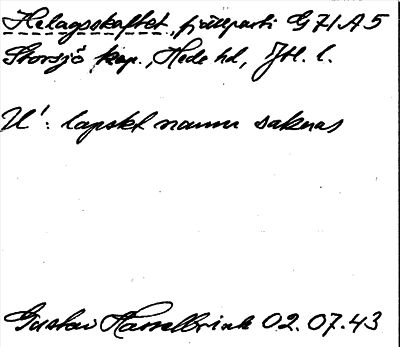 Helagsskaftet, fjällparti G71A5
Storsjö kap., Hede hd, Jtl. l.
U': lapskt namn saknas
Gustav Hasselbrink 02.07.43